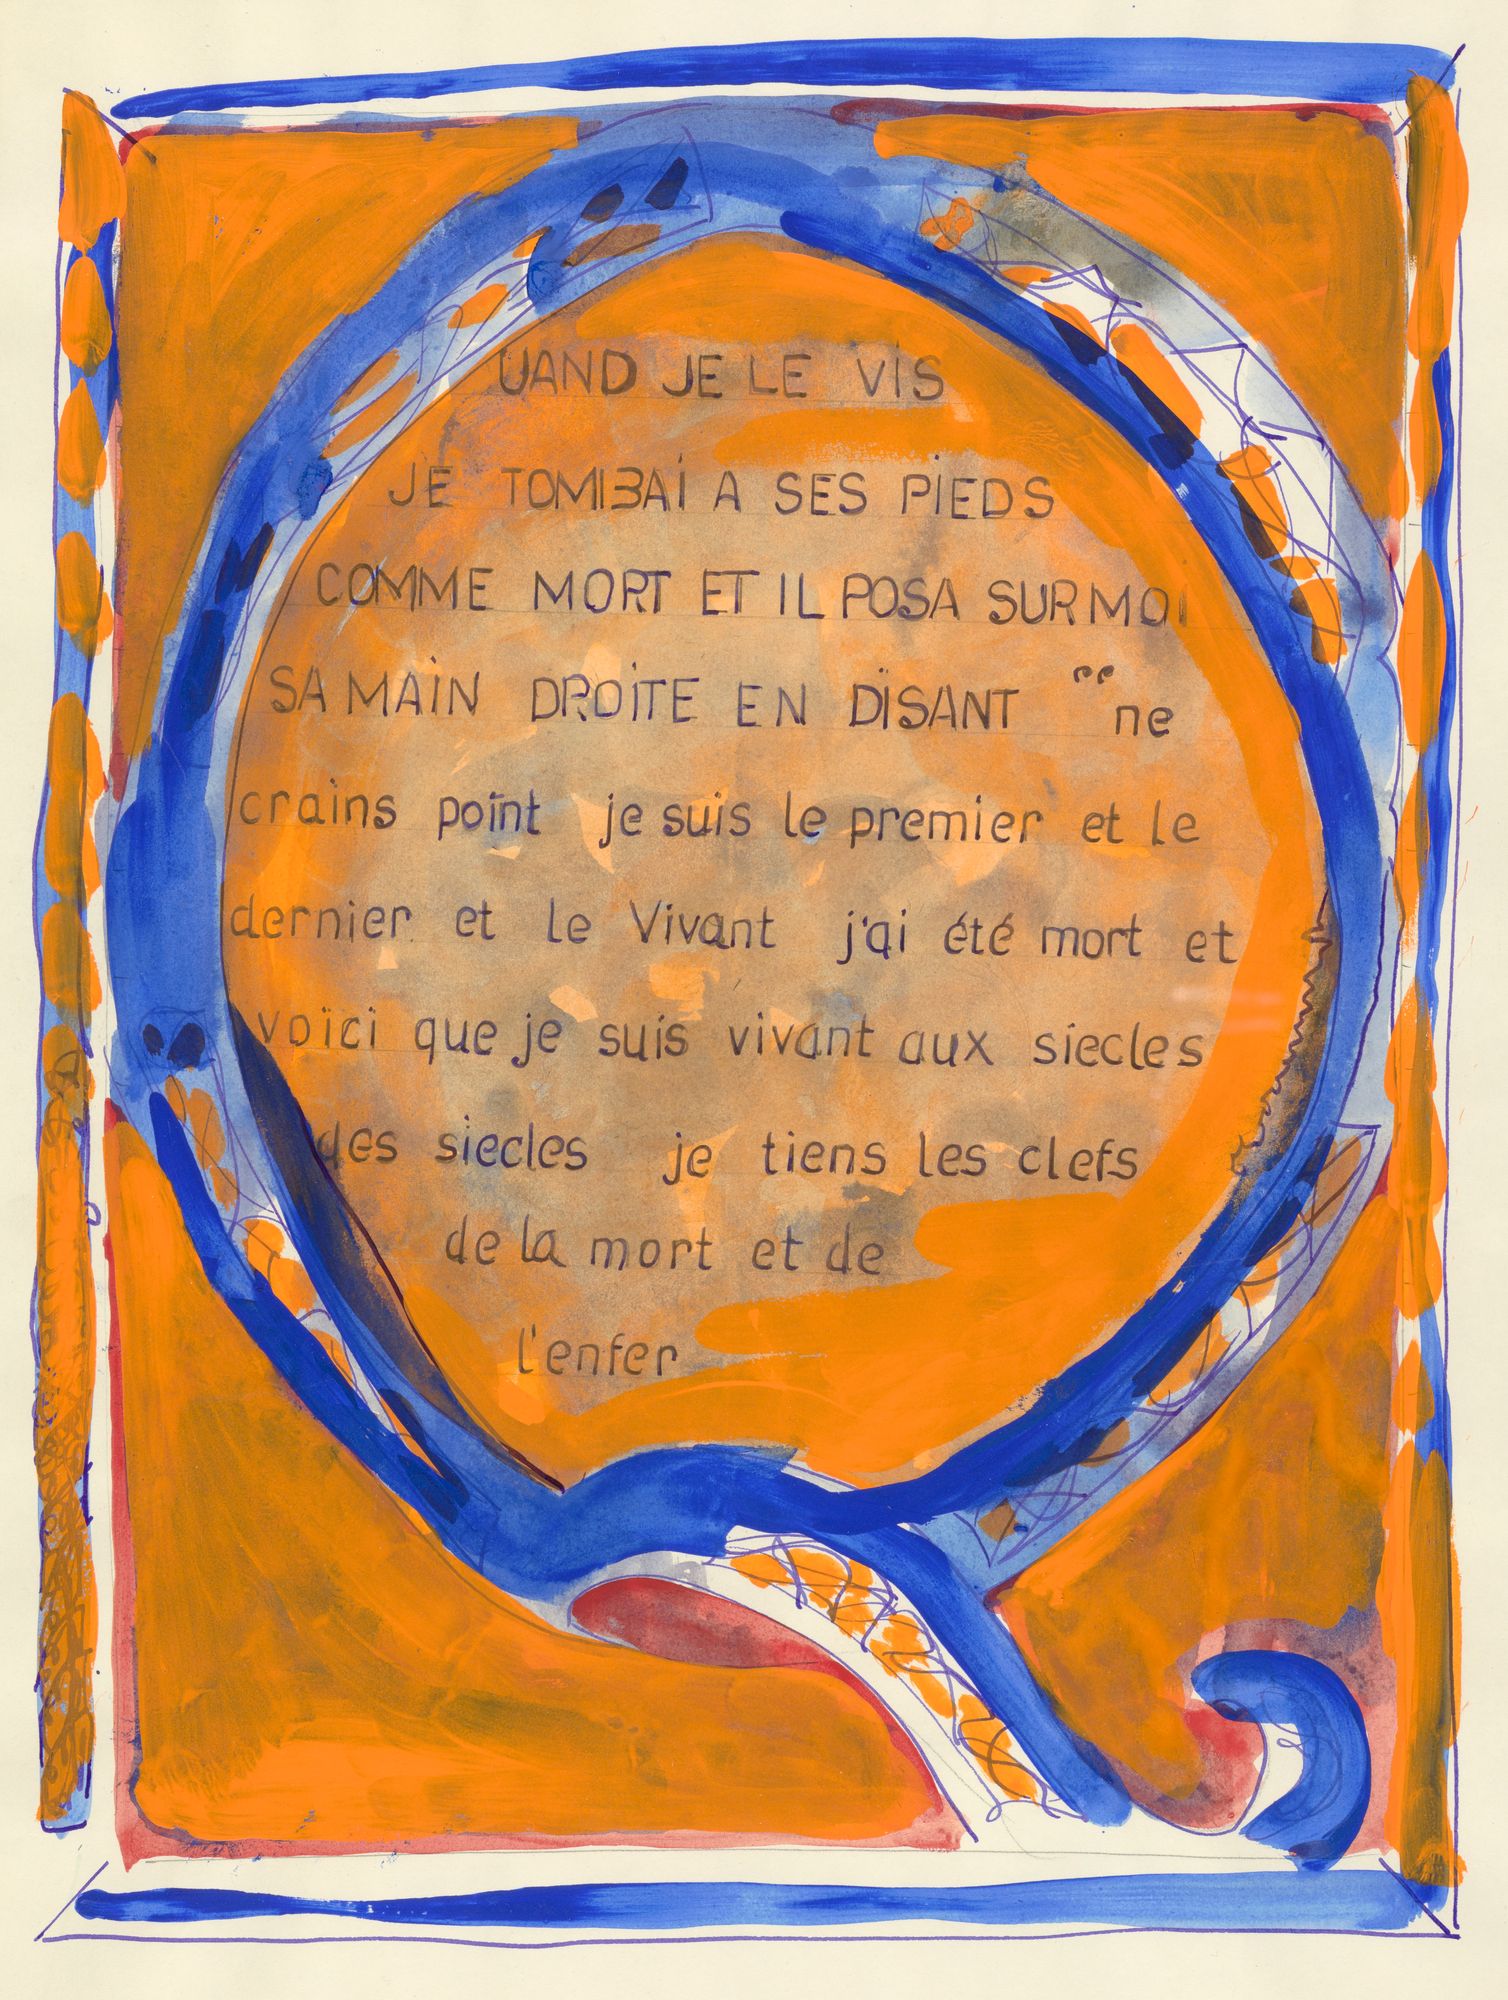 QUAND JE LE VIS
JE TOMBAI A SES PIEDS
COMME MORT ET IL POSA SUR MOI
SA MAIN DROITE EN DISANT "ne
crains point je suis le premier et le
dernier et le Vivant j'ai été mort et
voici que je suis vivant aux siecles
des siecles je tiens les clefs
de la mort et de
l'enfer